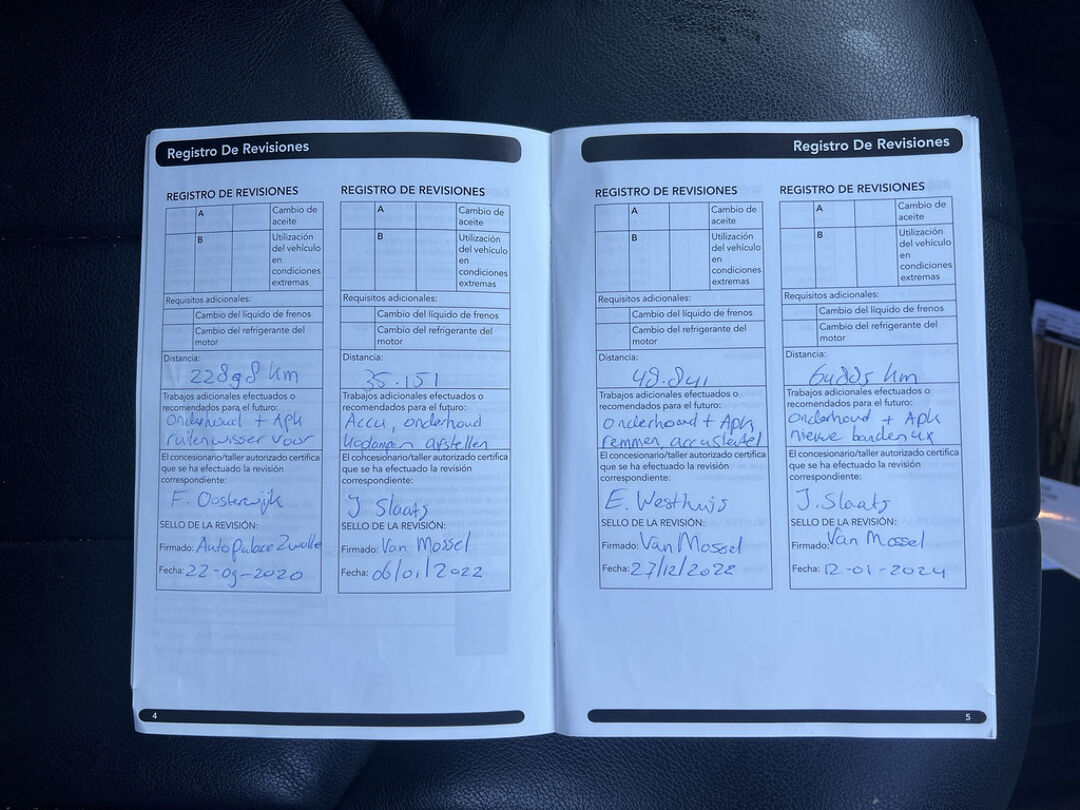 Registro De Revisiones
REGISTRO DE REVISIONES
A
Cambio de
aceite
B
Utilización
del vehículo
en
condiciones
extremas
Requisitos adicionales:
Cambio del líquido de frenos
Cambio del refrigerante del
motor
Distancia:
22898 km
Trabajos adicionales efectuados o
recomendados para el futuro:
onderhoud + Apk
ruitenwisser voor
El concesionario/taller autorizado certifica
que se ha efectuado la revisión
correspondiente:
F. Oosterwijk
SELLO DE LA REVISIÓN:
Firmado: Auto Palace Zwolle
Fecha: 22-09-2020
REGISTRO DE REVISIONES
A
Cambio de
aceite
B
Utilización
del vehículo
en
condiciones
extremas
Requisitos adicionales:
Cambio del líquido de frenos
Cambio del refrigerante del
motor
Distancia:
35.151
Trabajos adicionales efectuados o
recomendados para el futuro:
Accu, onderhoud
afstellen
El concesionario/taller autorizado certifica
que se ha efectuado la revisión
correspondiente:
J. Slaats
SELLO DE LA REVISIÓN:
Firmado: Van Mossel
Fecha: 06/01/2022
4
Registro De Revisiones
REGISTRO DE REVISIONES
A
Cambio de
aceite
B
Utilización
del vehículo
en
condiciones
extremas
Requisitos adicionales:
Cambio del líquido de frenos
Cambio del refrigerante del
motor
Distancia:
48.841
Trabajos adicionales efectuados o
recomendados para el futuro:
onderhoud + Apk,
remmen, accusleutel
El concesionario/taller autorizado certifica
que se ha efectuado la revisión
correspondiente:
E. Westhuis
SELLO DE LA REVISIÓN:
Firmado: Van Mossel
Fecha: 27/12/2022
REGISTRO DE REVISIONES
A
Cambio de
aceite
B
Utilización
del vehículo
en
condiciones
extremas
Requisitos adicionales:
Cambio del líquido de frenos
Cambio del refrigerante del
motor
Distancia:
64885 km
Trabajos adicionales efectuados o
recomendados para el futuro:
onderhoud + Apk
nieuwe banden 4x
El concesionario/taller autorizado certifica
que se ha efectuado la revisión
correspondiente:
J. Slaats
SELLO DE LA REVISIÓN:
Firmado: Van Mossel
Fecha: 12-01-2024
5